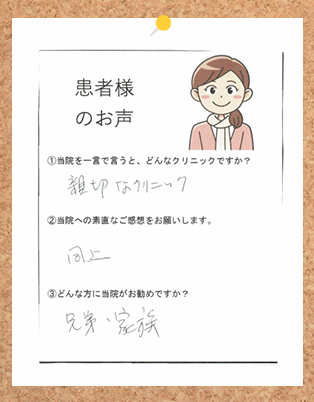 患者様
のお声
①当院を一言で言うと、どんなクリニックですか？
親切なクリニック
②当院への素直なご感想をお願いします。
同上
③どんな方に当院がお勧めですか？
兄弟・家族